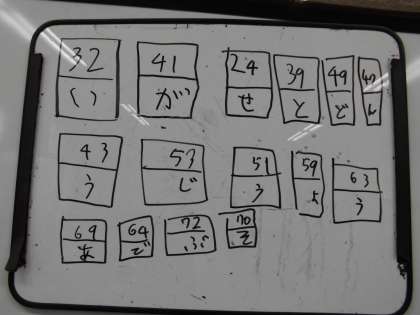 32 41 24 39 49
い が せ と ど ん
43 53 51 59 63
う じ う よ う
69 64 72 70
で ぶ そ